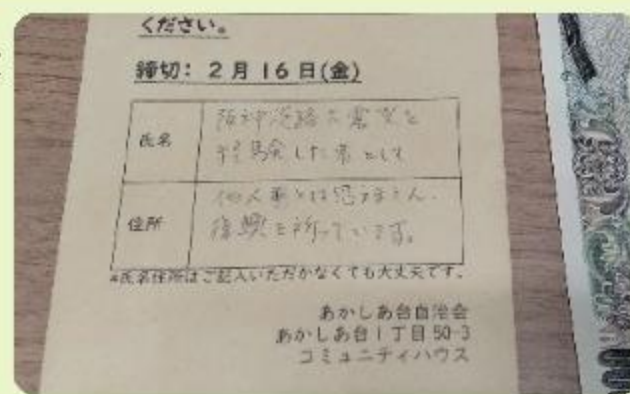 ください。
締切: 2月16日(金)
氏名
阪神淡路大震災を
経験した者として
住所
他人事とは思えません。
復興を祈っています。
*氏名住所はご記入いただかなくても大丈夫です。
あかしあ台自治会
あかしあ台1丁目50-3
コミュニティハウス